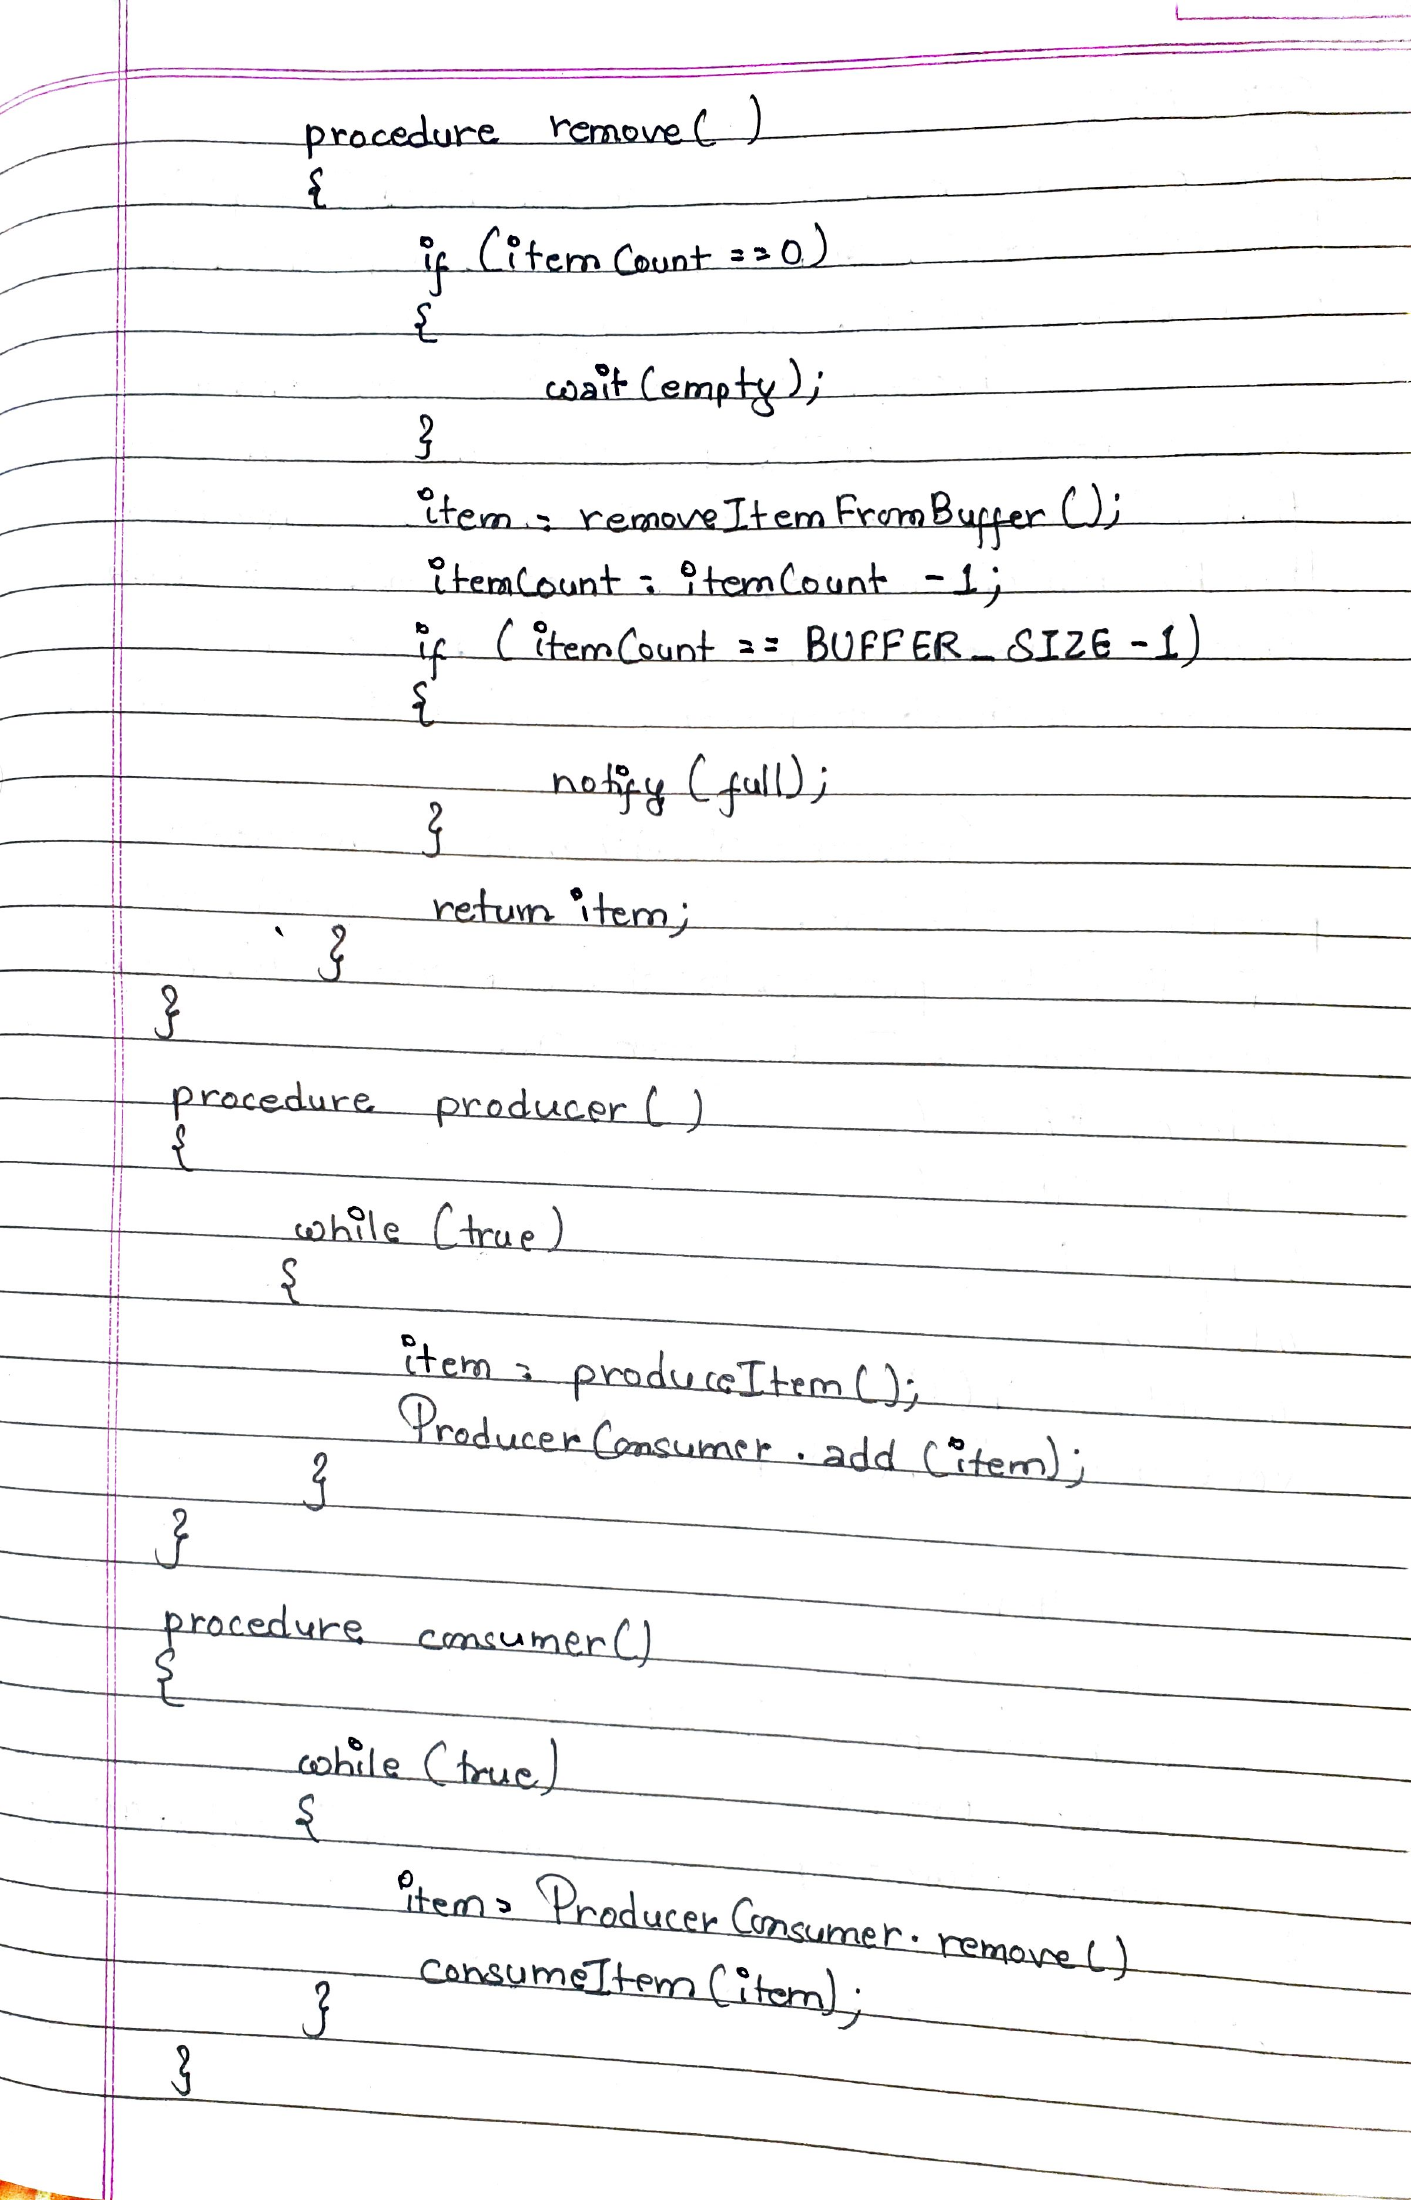 procedure remove( )
{
if (itemCount ==0)
{
wait (empty);
}
item = removeItemFromBuffer ();
itemCount = itemCount -1;
if (itemCount == BUFFER_SIZE -1)
{
notify (full);
}
return item;
}
}
procedure producer( )
{
while (true)
{
item = produceItem();
ProducerConsumer.add (item);
}
}
procedure consumer()
{
while (true)
{
item= ProducerConsumer.remove()
consumeItem (item);
}
}